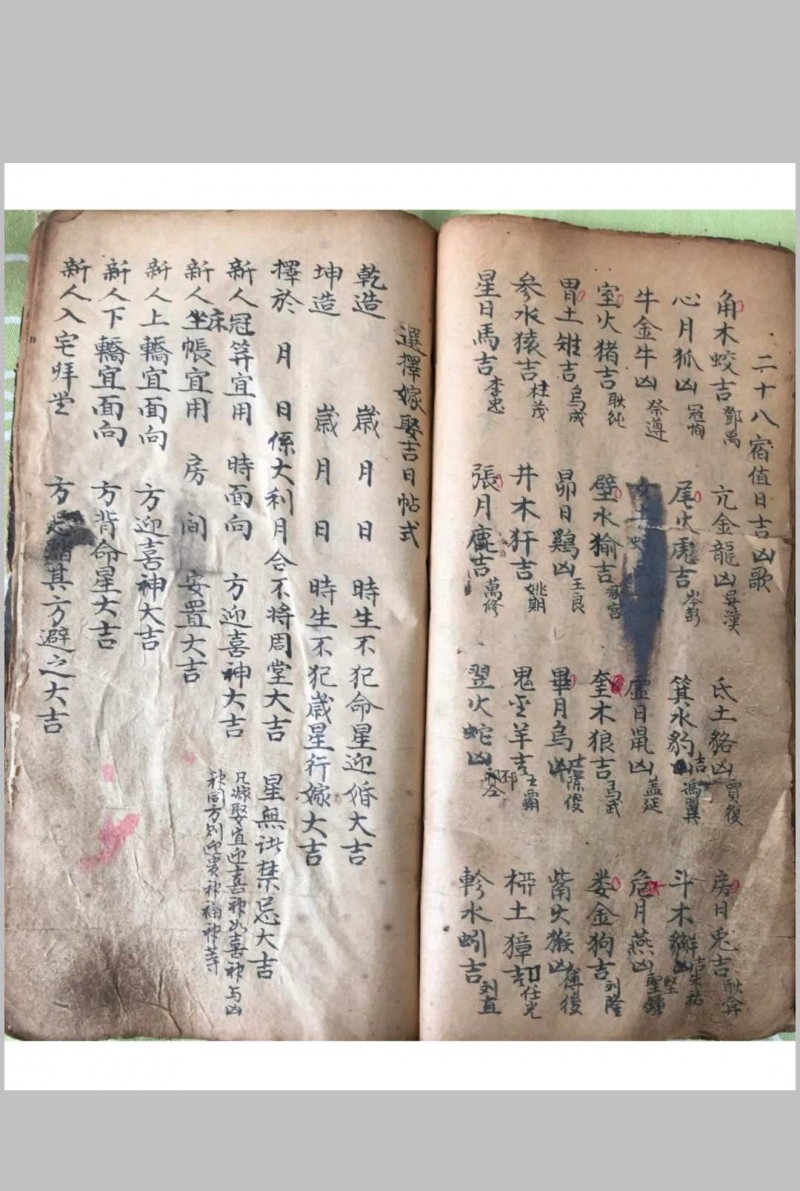 二十八宿值日吉凶歌
角木蛟吉鄧禹 亢金龍凶吳漢 氐土貉凶賈復 房日兎吉耿弇
心月狐凶冠恂 尾火虎吉岑彭 箕水豹吉馮異 斗木獬吉朱祐
牛金牛凶祭遵 虛日鼠凶盖延 危月燕凶堅鐔
室火猪吉耿純 壁水㺄吉臧宮 奎木狼吉馬武 娄金狗吉刘隆
胃土雉吉烏成 昴日鷄凶王良 畢月烏吉陈俊 觜火猴凶傅俊
参水猿吉杜茂 井木犴吉姚期 鬼金羊吉王霸 柳土獐吉任光
星日馬吉李忠 張月鹿吉萬修 翌火蛇凶邳仝 軫水蚓吉刘直
選擇嫁娶吉日帖式
乾造 歲 月 日 時生不犯命星迎婚大吉
坤造 歲 月 日 時生不犯歲星行嫁大吉
擇於 月 日係大利月合不將周堂大吉 星無訛禁忌大吉
新人冠笄宜用 時面向 方迎喜神大吉 凡嫁娶宜迎喜神如喜神与凶
神同方則迎貴神福神等
新人坐床帳宜用 房間 安置大吉
新人上轎宜面向 方迎喜神大吉
新人下轎宜面向 方背命星大吉
新人入宅拜堂 方忌 其方避之大吉